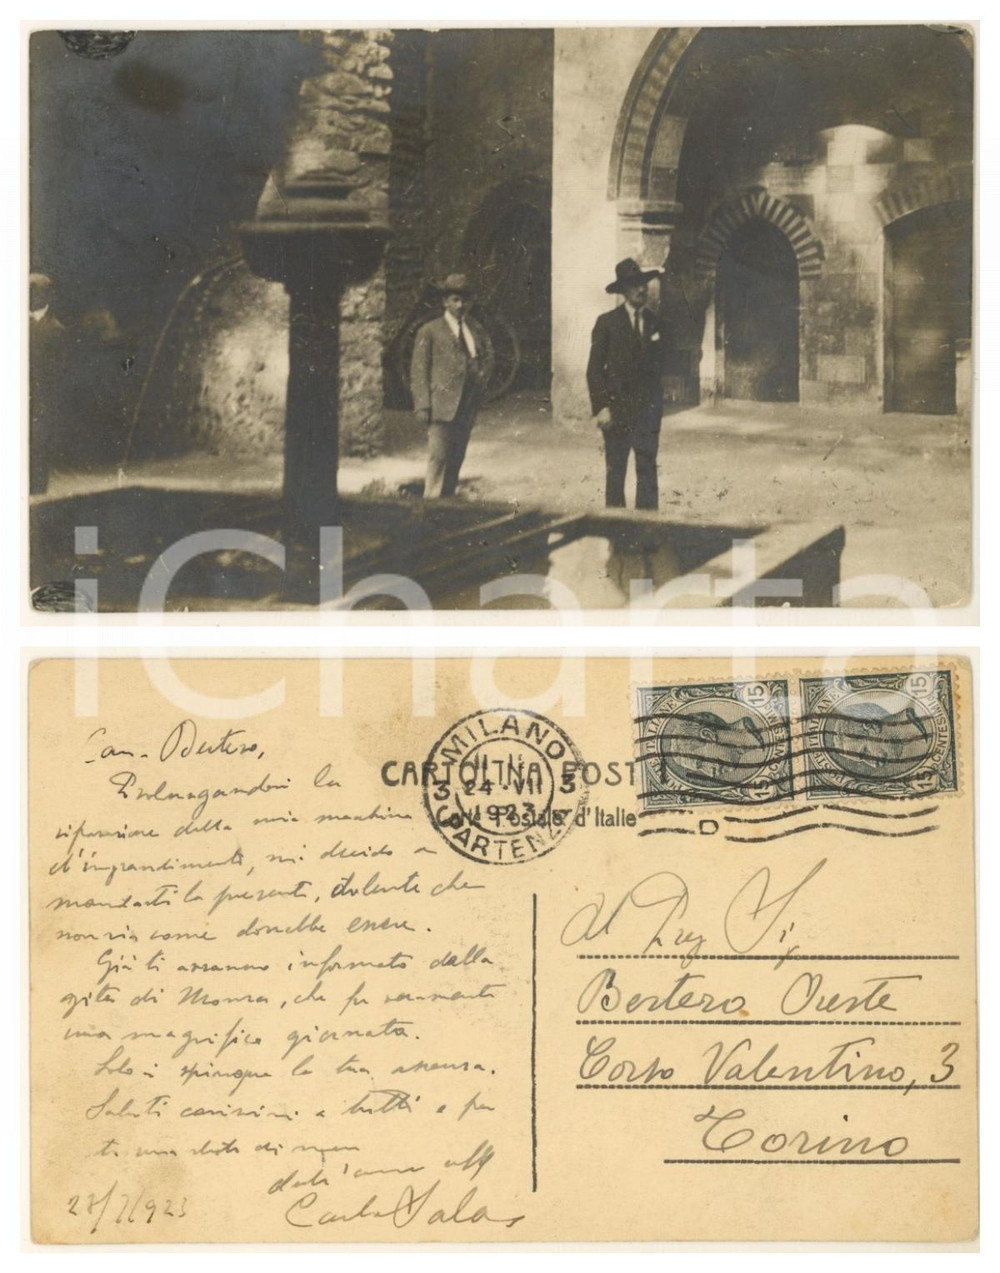 iCharta
Car. Bertero,
Prolungandosi la
riparazione della mia macchina
d'ingrandimenti, mi decido a
mandarti la presente, dolente che
non sia come dovrebbe essere.
Già ti avranno informato dalla
gita di Monza, che fu veramente
una magnifica giornata.
Solo spiacque la tua assenza.
Saluti carissimi a tutti e per
te una stretta di mano
dall'amico aff
Carlo Sala
/7/923
CARTOLINA POST
Carte Postale d'Italie
MILANO
PARTENZA
24·VII
1923
3 3
POSTE ITALIANE
CENTESIMI
15 15
POSTE ITALIANE
CENTESIMI
15 15
D
Al Preg Sig
Bertero Oreste
Corso Valentino, 3
Torino